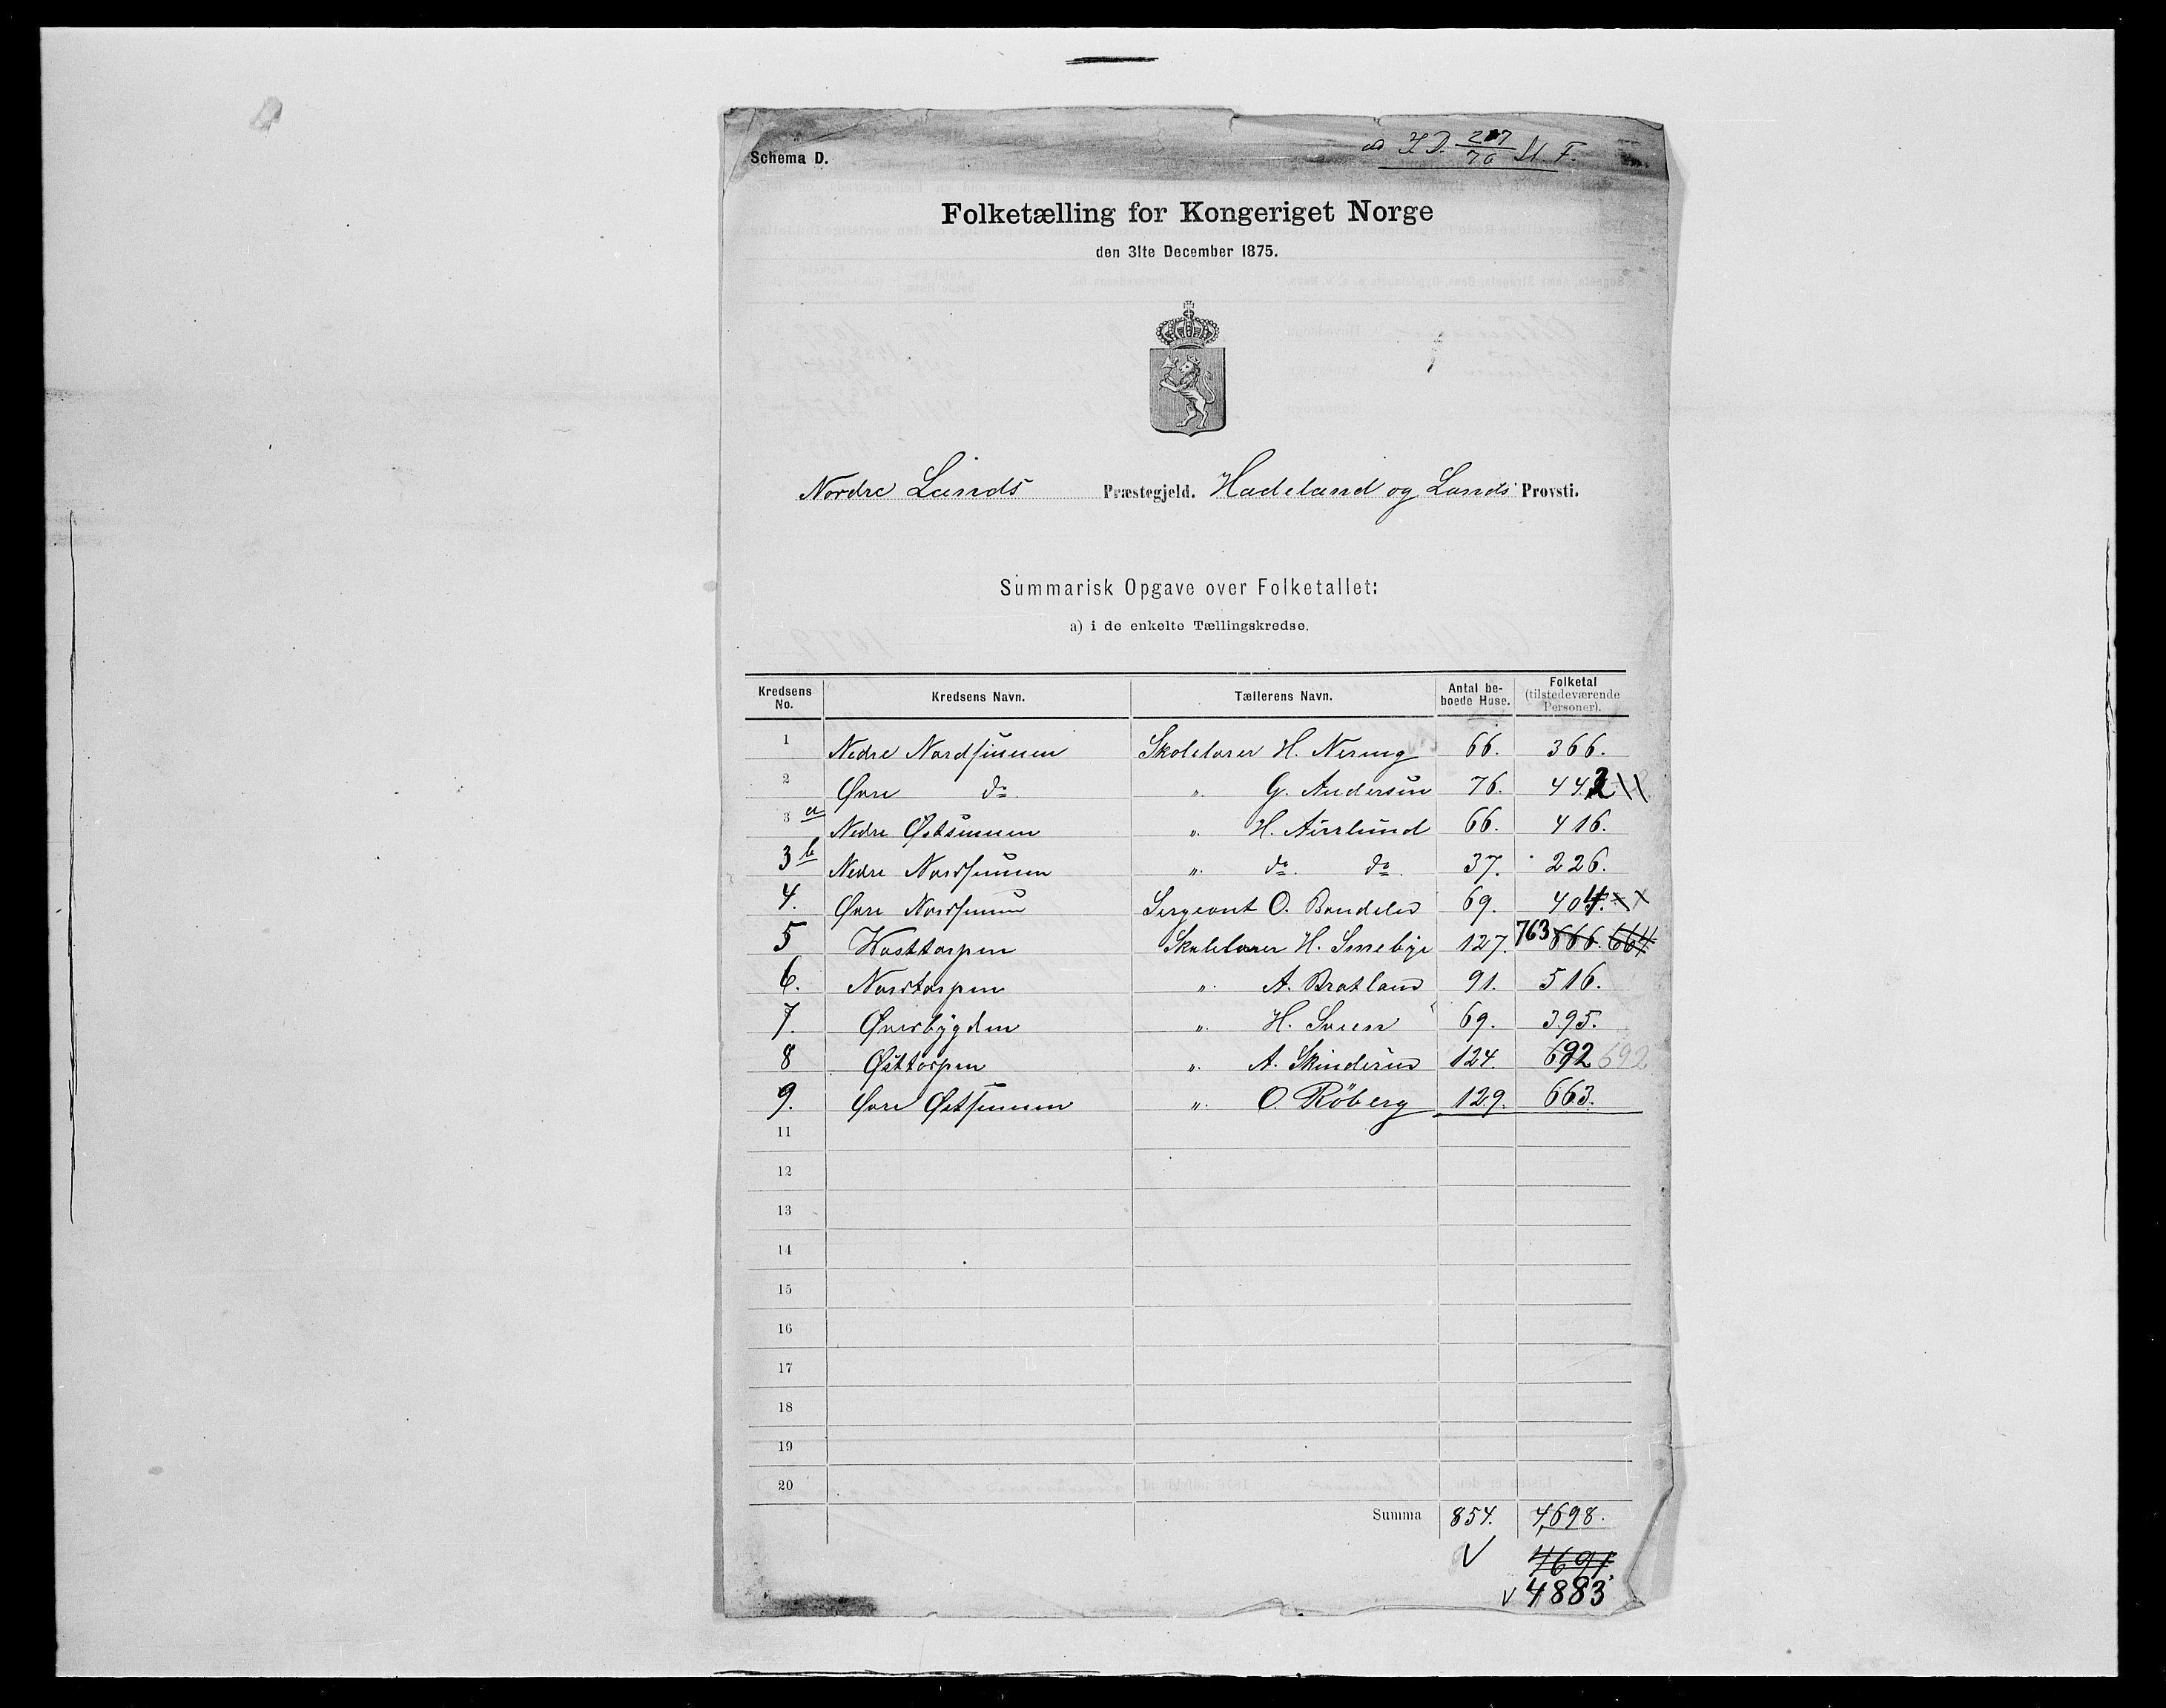 Schema D.
ad J.D. 217/76 M. F.
Folketælling for Kongeriget Norge
den 31te December 1875.
Nordre Lands Præstegjeld. Hadeland og Lands Provsti.
Summarisk Opgave over Folketallet:
a) i de enkelte Tællingskredse.
Kredsens No. Kredsens Navn. Tællerens Navn. Antal beboede Huse. Folketal (tilstedeværende Personer).
1 Nedre Nordsinnen Skolelærer H. Nering 66. 366.
2 Øvre do. ". G. Andersen 76. 442
3 a Nedre Østsinnen ". H. 66. 416.
3 b Nedre Nordsinnen ". do. do. 37. 226.
4. Øvre Nordsinnen Sergeant O. 69. 404.
5 Vesttorpen Skolelærer H. 127. 763 666. 664
6. Nordtorpen ". A. Bratland 91. 516.
7. Øversbygden ". H. 69. 395.
8 Østtorpen ". A. Skinderud 124. 692 692
9. Øvre Østsinnen ". O. Röberg 129. 663.
11
12
13
14
15
16
17
18
19
20
Summa 854. 4,698.
4691
4883